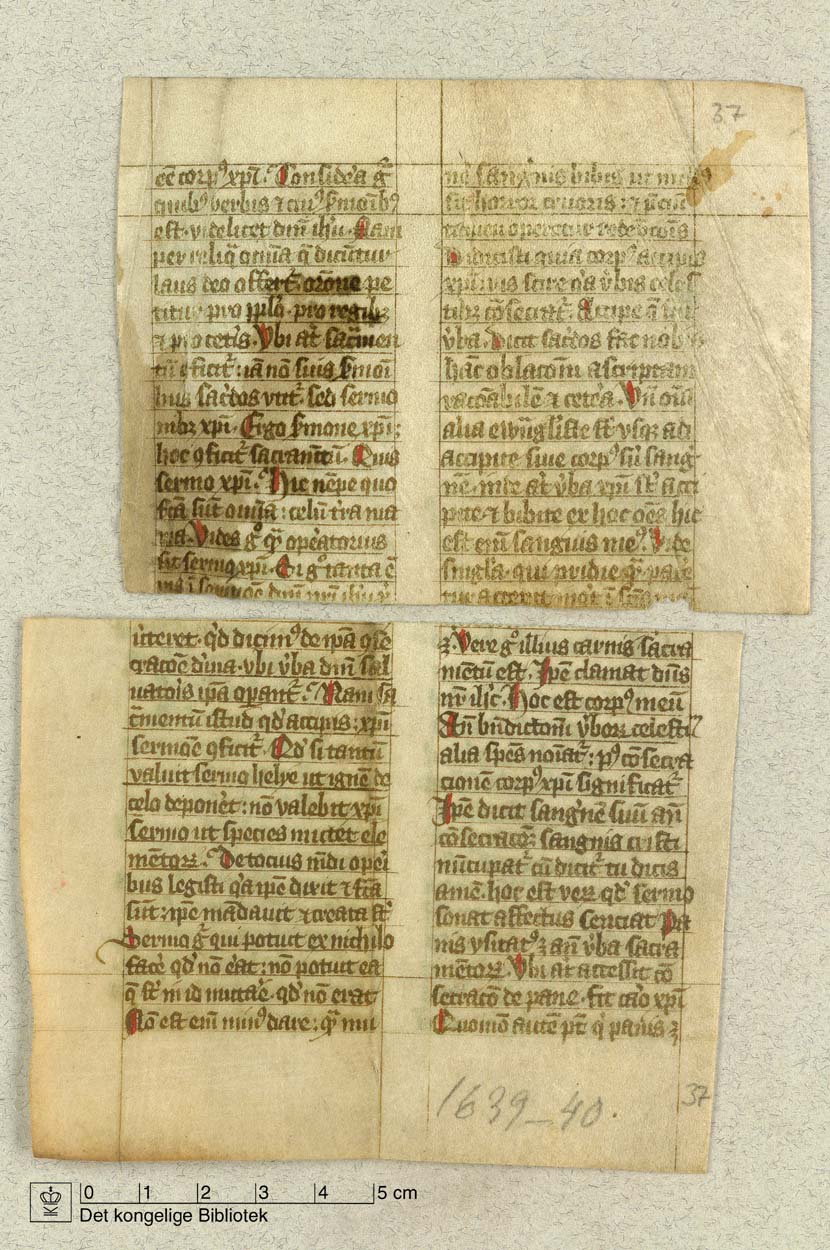 37
eē corpꝯ xp̄i. Considera gͦ
quibꝫ verbis ⁊ cuiꝯ ẜmoībꝫ
est. videlicet dn̄i ih̄u. Nam
per reliq̄ om̄ia q̄ dicūtur
laus deo offert᷑. orōne pe
titur pro ppl̄o. pro regibꝫ
⁊ pro cetīs. Vbi at̄ sac̄men
tū ꝯficit᷑: iā nō suis ẜmoni
bus sac̄dos vtit᷑. sed sermo
nibꝫ xp̄i. Ergo ẜmone xp̄i:
hoc ꝯficit᷑ sacramētū. Quis
sermo xp̄i. Hic nēpe quo
fc̄a sūt om̄ia: celū t̄ra ma
ria. Vides gͦ q̄ꝫ op̄atorius
sit sermo xp̄i. Si gͦ tanta ē
vis ī sermōe dn̄i
nē sanguīs bibis ut
sit horror cruoris: ⁊ p̄ciū
tamen operetur redēpcōis
Didicisti quia corpꝯ accipis
xp̄i: vis scire q̄a v̄bis celes
tibꝫ cōsecrat᷑. Accipe q̄
v̄ba. Dicit sac̄dos fac nobis
hāc oblacōm ascriptam
racōabilē ⁊ cetēa. Vn̄ om̄ia
alia ewāgliste st̄ vsqꝫ ad
accipite siue corpꝯ siue sang
nē. inde at̄ v̄ba xp̄i st̄ acci
pite ⁊ bibite ex hoc oēs hic
est em̄ sanguis meꝯ. Vide
singl̄a. qui pridie q̄ꝫ pate
ut̄teret. qd̄ dicimꝯ de ip̄a cōse
cracōe diuīa. vbi v̄ba dn̄i sal
uatoris ip̄a op̄ant᷑. Nam sa
c̄mentū istud qd̄ accipis: xp̄i
sermōe ꝯficit᷑. Qd̄ si tantū
valuit sermo helye ut ignē de
celo deponēt: nō valebit xp̄i
sermo ut species mutet ele
mētoꝝ. De tocius mūdi operi
bus legisti q̄a ip̄e dixit ⁊ fc̄a
sūt: ip̄e mādauit ⁊ creata st̄
Sermo gͦ qui potuit ex nichilo
facē qd̄ nō erat: nō potuit ea
q̄ st̄ in id mutare. qd̄ nō erat
Nō est em̄ minꝯ dare: q̄ꝫ mu
ꝝ. Vere gͦ illius carnis sacra
mētū est. Ip̄e clamat dn̄s
nr̄ ih̄c. Hoc est corpꝯ meū
An̄ bn̄dictōm v̄boꝝ celestiū
alia sp̄es noīat᷑: pꝯ cōsecra
cionē corpꝯ xp̄i significat᷑
Ip̄e dicit sanguinē suū an̄
cōsecracōꝫ sanguis cristi
nūcupat᷑ cū dicit᷑ tu dicis
amē. hoc est veꝝ qd̄ sermo
sonat affectus senciat Pa
nis vsitatꝯ ꝫ an̄ v̄ba sacra
mētoꝝ. Vbi at̄ accessit cō
secracō de pane. fit caro xp̄i
Quomō autē pt̄ q̄ panis ꝫ
1639–40.
37
0 1 2 3 4 5 cm
Det kongelige Bibliotek